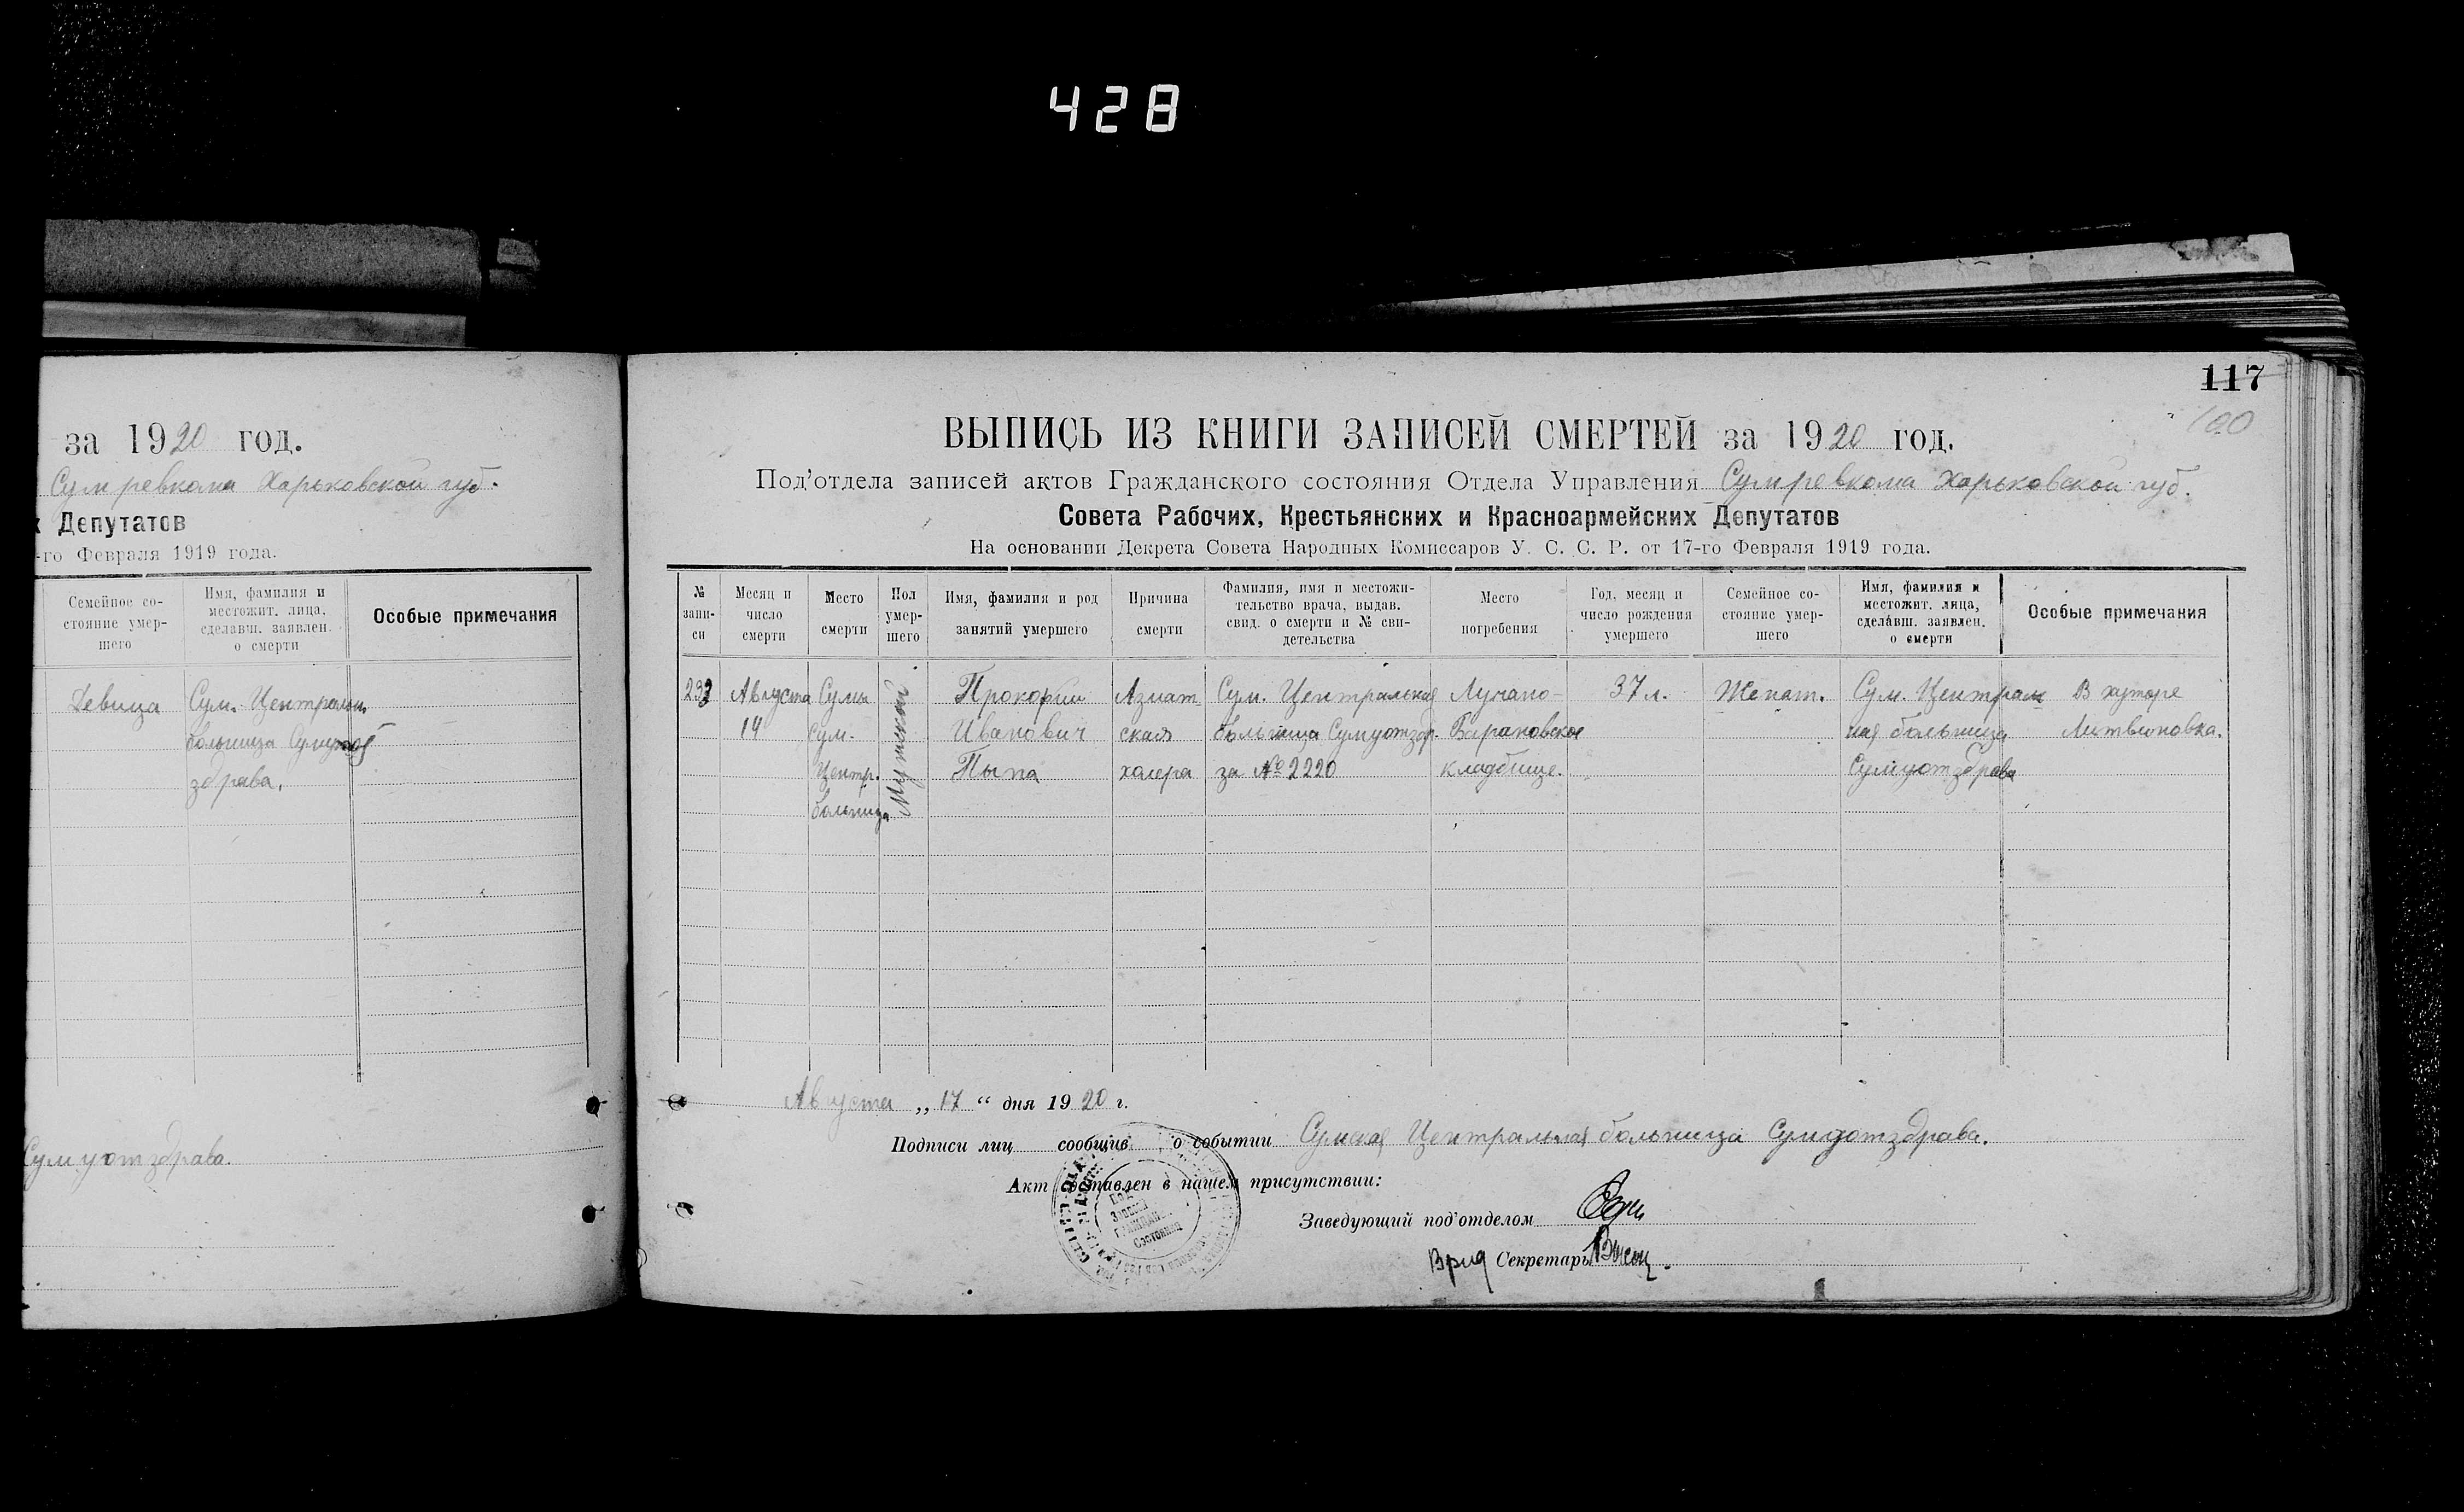 428
за 1920 год.
Сумревкома Харьковской губ.
Депутатов
-го Февраля 1919 года.
Семейное со-
стояние умер-
шего
Имя, фамилия и
местожит. лица,
сделавш. заявлен.
о смерти
Особые примечания
Девица
Сум. Централь.
больница
здрава.
Сумуотздрава.
117
100
ВЫПИСЬ ИЗ КНИГИ ЗАПИСЕЙ СМЕРТЕЙ за 1920 год.
Под'отдела записей актов Гражданского состояния Отдела Управления Сумревкома Харьковской губ.
Совета Рабочих, Крестьянских и Красноармейских Депутатов
На основании Декрета Совета Народных Комиссаров У. С. С. Р. от 17-го Февраля 1919 года.
№
запи-
си
Месяц и
число
смерти
Место
смерти
Пол
умер-
шего
Имя, фамилия и род
занятий умершего
Причина
смерти
Фамилия, имя и местожи-
тельство врача, выдав.
свид. о смерти и № сви-
детельства
Место
погребения
Год, месяц и
число рождения
умершего
Семейное со-
стояние умер-
шего
Имя, фамилия и
местожит. лица,
сделавш. заявлен.
о смерти
Особые примечания
233
Августа
14
Сумы
Сум.
Центр.
больница
Мужской
Прокофий
Иванович
Тыпа
Азиат
ская
холера
Сум. Центральная
больница Сумуотздр.
за № 2220
Лучано-
Барановское
кладбище.
37 л.
Женат.
Сум. Централь
ная больница
Сумуотздрава
В хуторе
Литвиновка.
Августа „17“ дня 1920 г.
Подписи лиц сообщив. о событии Сумская Центральная больница Сумуотздрава.
Акт составлен в нашем присутствии:
Заведующий под'отделом
Врид Секретарь
Под
Записи
Граждан.
Состояния